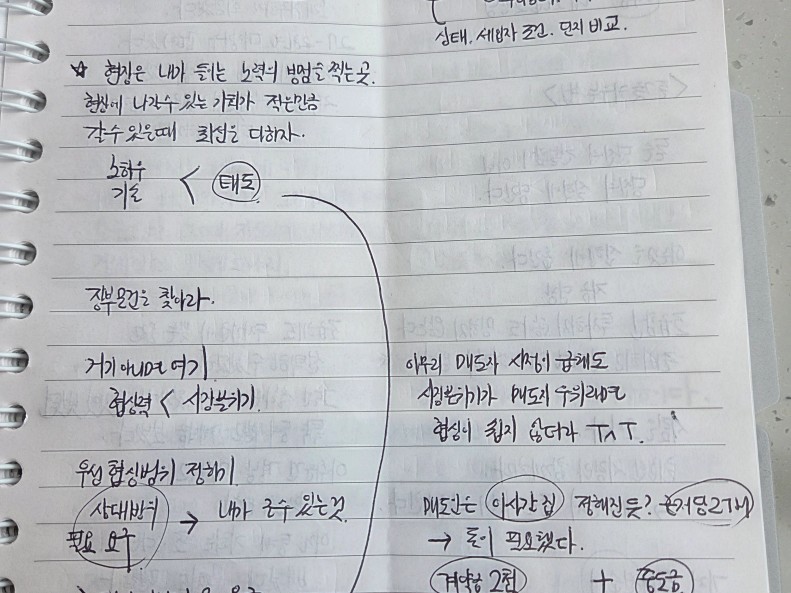 상태. 세입자 조건. 단지 비교.
☆ 현장은 내가 들이는 노력의 보험을 찍는 곳.
현장에 나갈수 있는 기회가 적은만큼
갈수 있을때 최선을 다하자.
노하우
기술 < 태도
장부물건을 찾아라.
거기 아니면 여기
협상력 < 시장분위기.
우선 협상범위 정하기.
상대방의
필요 요구 → 내가 줄수 있는것.
아무리 매도자 사정이 급해도
시장분위기가 매도자 우위라면
협상이 쉽지 않더라 ㅠㅅㅠ.
매도인은 이사갈 집 정해진듯?
→ 돈이 필요했다.
계약금 2천 + 중도금